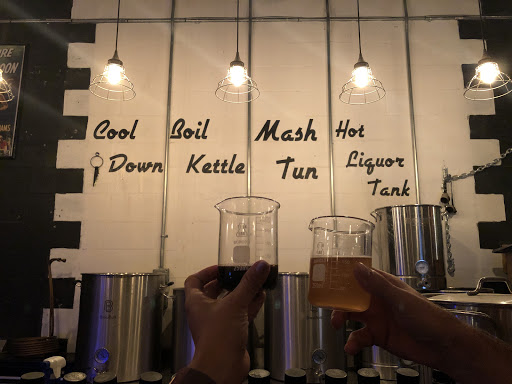 Cool
Down
Boil
Kettle
Mash
Tun
Hot
Liquor
Tank